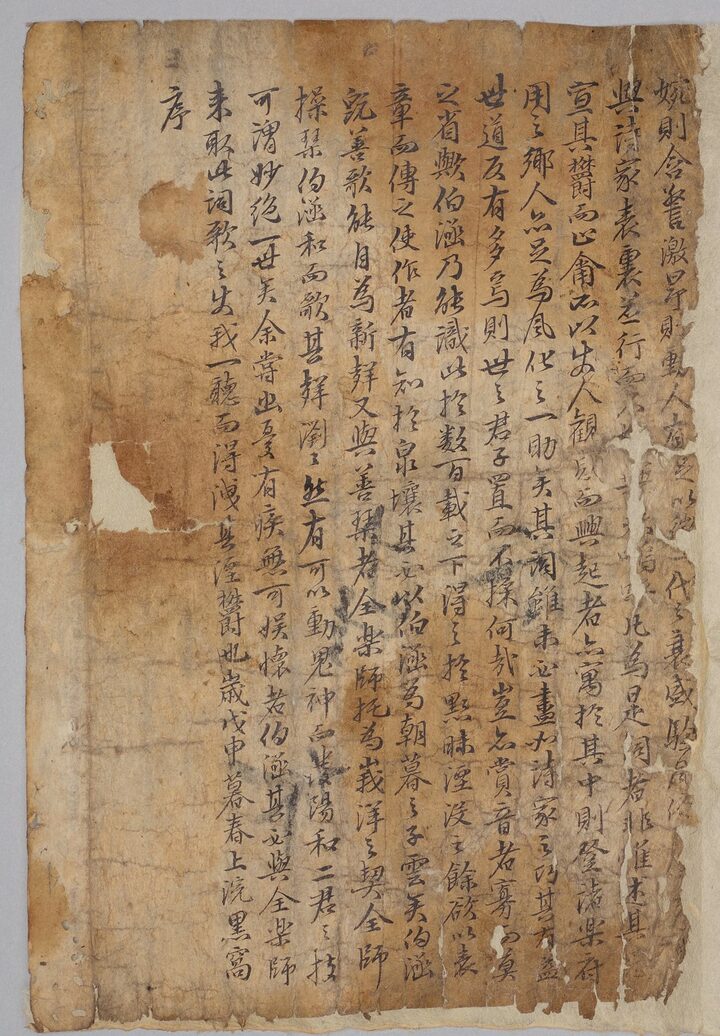 婉則含譽激昂則動人有足以徵一代之衰盛驗風俗
與詩家表裏並行而不相無 凡為是詞者非惟述其思
宣其鬱而止爾所以使人觀感而興起者亦寓於其中則登諸樂府
用之鄉人亦足為風化之一助矣其詞雖未必盡如詩家之巧其有益
世道反有多焉則世之君子置而不採何哉豈亦賞音者寡而莫
之省歟伯涵乃能識此於數百載之下得之於黭昧湮沒之餘欲以表
章而傳之使作者有知於泉壤其必以伯涵為朝暮之子雲矣伯涵
旣善歌能自為新聲又與善琴者全樂師托為峩洋之契全師
操琴伯涵和而歌其聲瀏々然有可以動鬼神而發陽和二君之技
可謂妙絕一世矣余嘗幽憂有疾無可娛懷者伯涵其必與全樂師
來取此詞歌之使我一聽而得洩其湮鬱也歲戊申暮春上浣黑窩
序